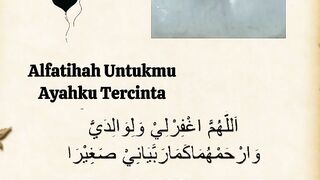 Alfatihah Untukmu
Ayahku Tercinta
اَللّٰهُمَّ اغْفِرْلِيْ وَلِوَالِدَيَّ
وَارْحَمْهُمَاكَمَارَبَّيَانِيْ صَغِيْرَا